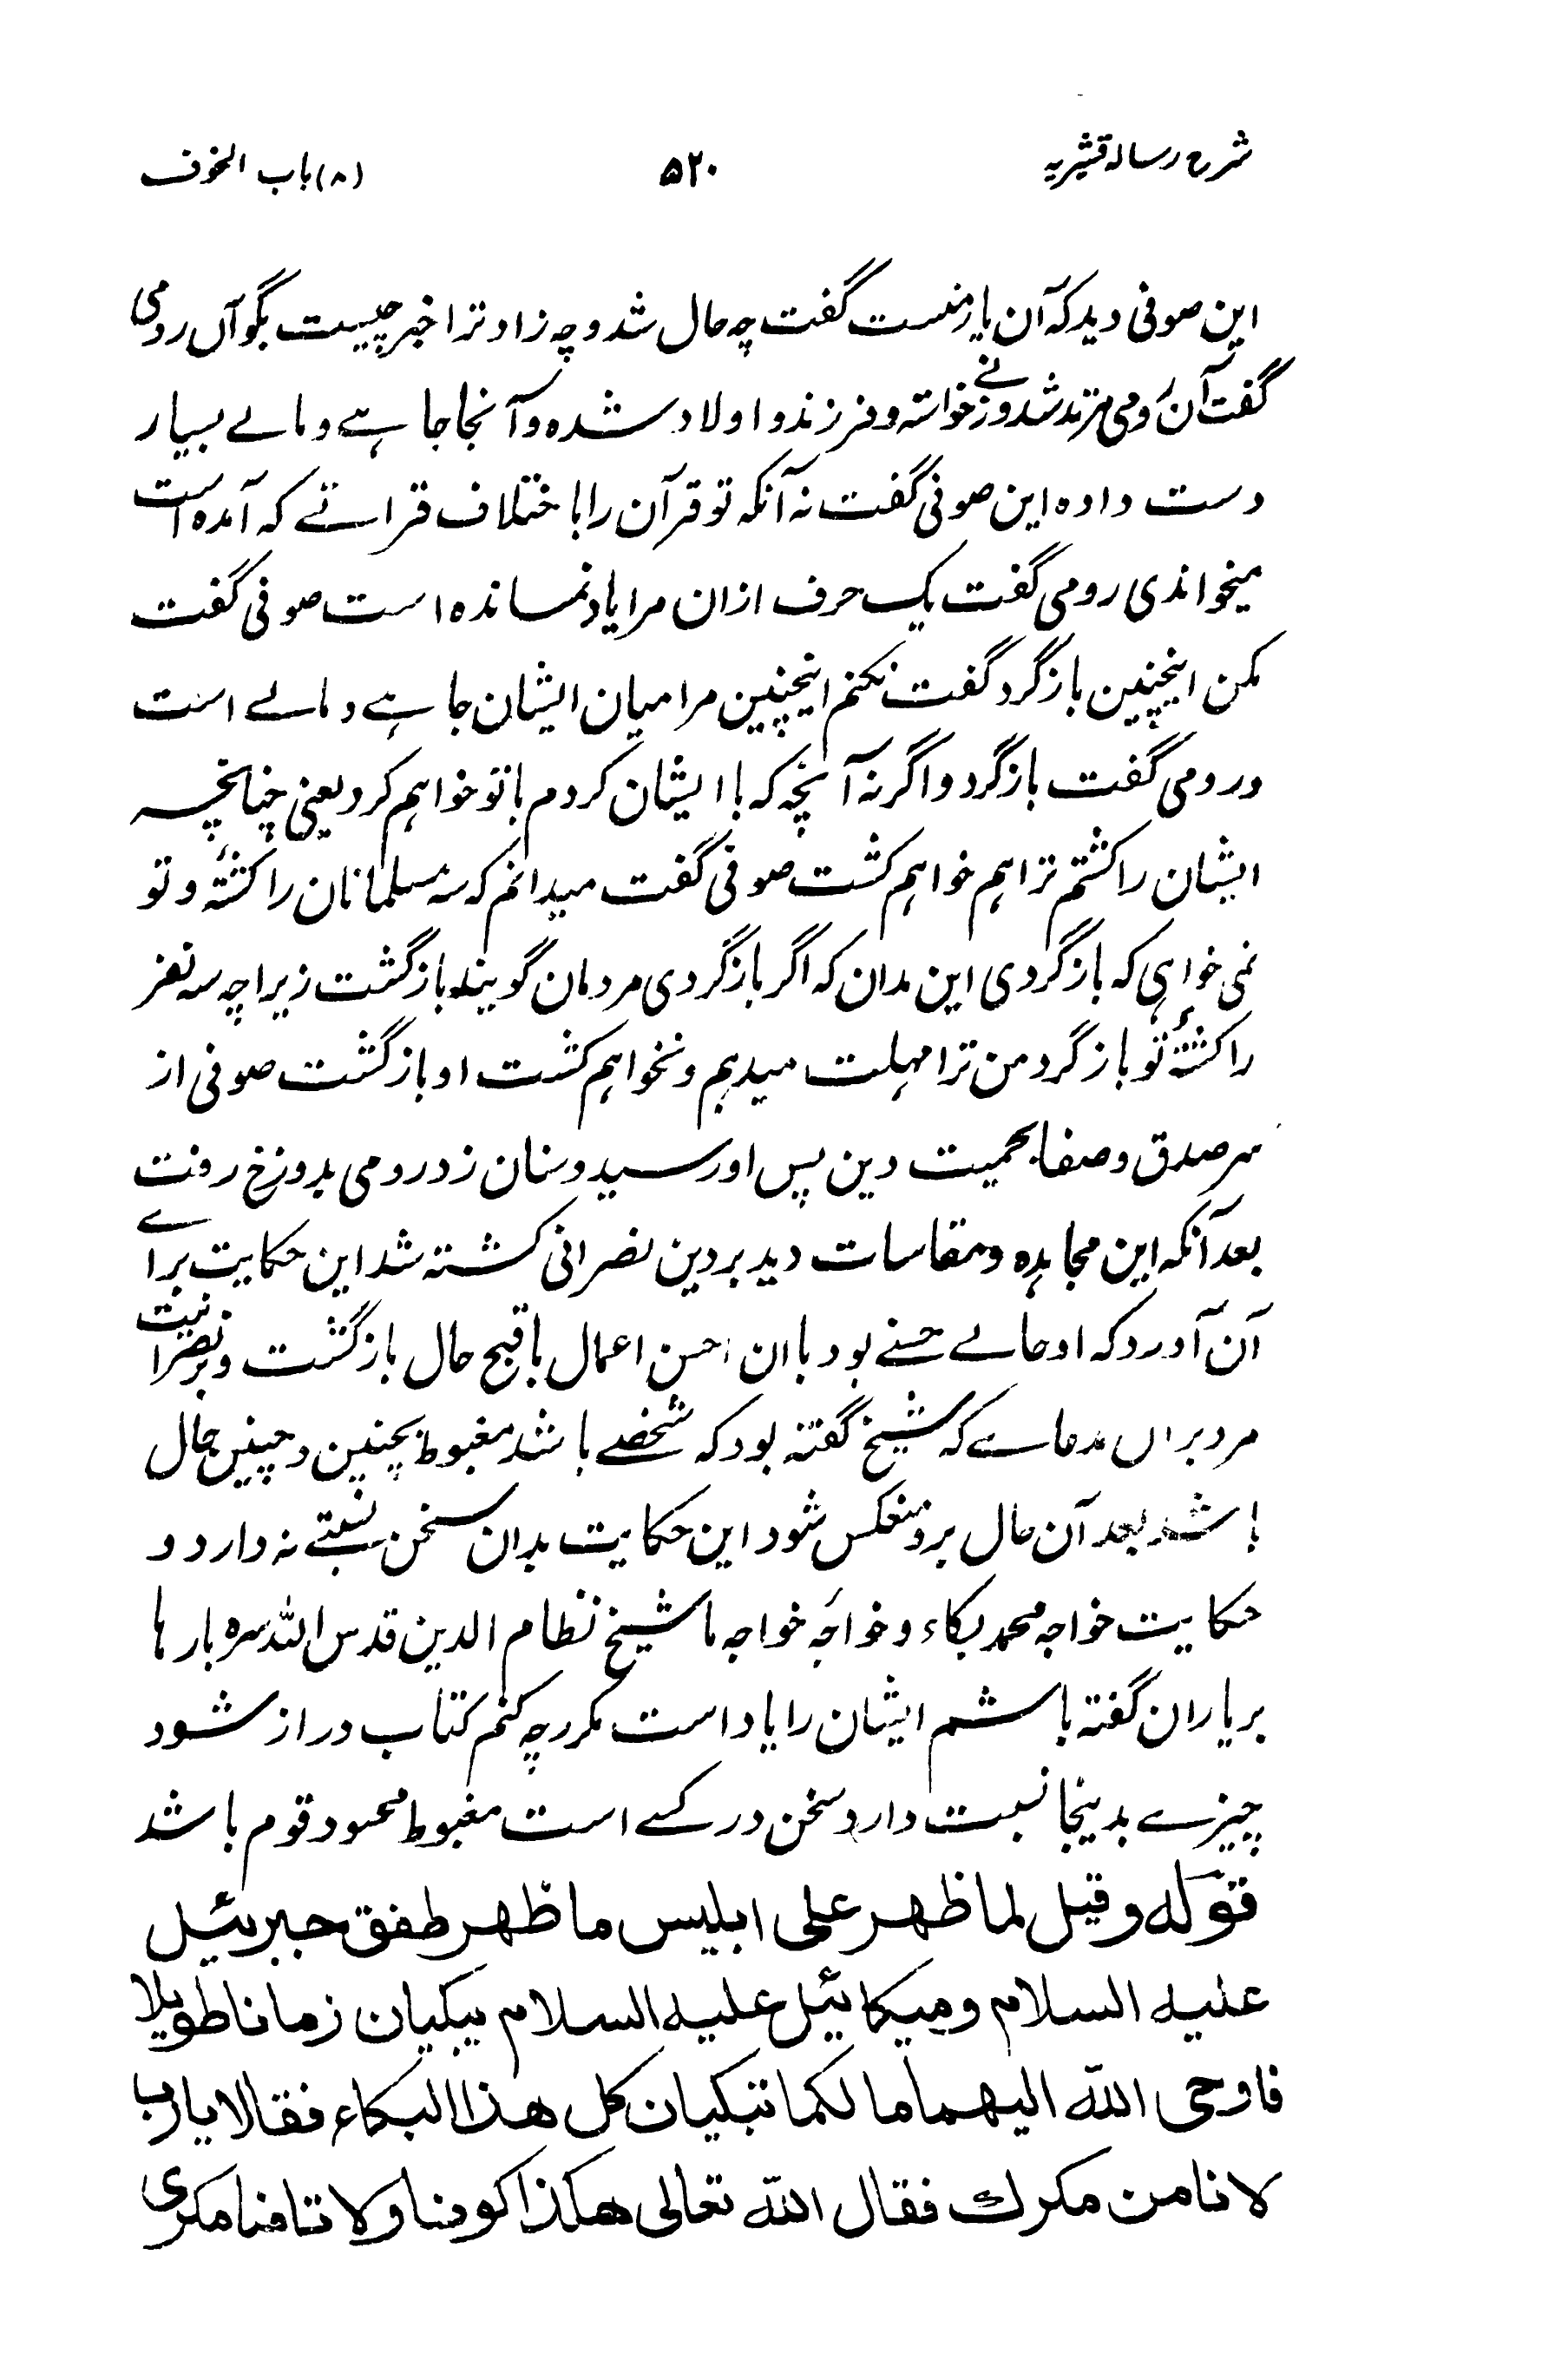 شرح رسالہ قشیریہ ۵۲۰ (۸) باب الخوف
این صوفی دید کہ آن یار منست گفت چہ حال شد و چہ زاد ترا خبر چیست بگو آں رومی
گفت آن رومی مرتد شد و زنے خواستہ و فرزند و اولاد شدہ و آنجا جاہے و مالے بسیار
دست دادہ این صوفی گفت نہ آنکہ تو قرآن را با ختلاف قراتے کہ آمدہ است
میخواندی رومی گفت یک حرف ازان مرا یاد نماندہ است صوفی گفت
مکن اینچنین بازگرد گفت نکنم اینچنین مرا میان ایشان جاہے و مالے است
و رومی گفت بازگرد و اگر نہ آنچہ کہ با ایشان کردم با تو خواہم کرد یعنی چنانچہ
ایشان را کشتم ترا ہم خواہم کشت صوفی گفت میدانم کہ سہ مسلمانان را کشتۂ و تو
نمی خواہی کہ بازگردی این مدان کہ اگر بازگردی مردمان گویند بازگشت زیراچہ سہ نفر
را کشتۂ تو بازگرد من ترا مہلت میدہم و نخواہم کشت او بازگشت صوفی از
سر صدق و صفا بحمیت دین پس او رسید و سنان زد رومی بدوزخ رفت
بعد آنکہ این مجاہدہ و مقاسات دید بر دین نصرانی کشتہ شد این حکایت براے
آن آورد کہ او حالے حسنے بود بان احسن اعمال باقبح حال بازگشت و بر نصرانیت
مرد براں مدعاے کہ شیخ گفتہ بود کہ شخصے باشد مغبوط بچنین و چنین حال
باشد بعد آن حال برو منعکس شود این حکایت بدان سخن نسبتے نہ دارد و
حکایت خواجہ محمد بکاء و خواجۂ خواجہ ما شیخ نظام الدین قدس اللہ سرہ بارہا
بر یاران گفتہ باشم ایشان را یاد است مکرر چہ کنم کتاب دراز شود
چیزے بدینجا نسبت دارد سخن در کسے است مغبوط محسود قوم باشد
قوله وقيل لما ظهر على ابليس ما ظهر طفق جبرئيل
عليه السلام وميكائيل عليه السلام يبكيان زمانا طويلا
فاوحى الله اليهما ما لكما تبكيان كل هذا البكاء فقالا يا رب
لا نامن مكرك فقال الله تعالى هكذا كونا ولا تامنا مكرى